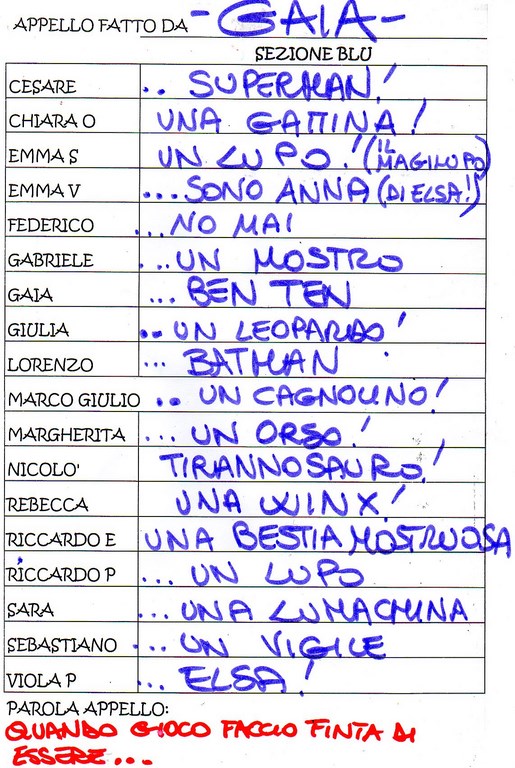 APPELLO FATTO DA -GAIA-
SEZIONE BLU
CESARE .. SUPERMAN!
CHIARA O UNA GATTINA!
EMMA S UN LUPO! (IL MAGILUPO)
EMMA V ...SONO ANNA (DI ELSA!)
FEDERICO ...NO MAI
GABRIELE ...UN MOSTRO
GAIA ... BEN TEN
GIULIA .. UN LEOPARDO!
LORENZO ... BATMAN
MARCO GIULIO .. UN CAGNOLINO!
MARGHERITA ... UN ORSO!
NICOLO' TIRANNOSAURO!
REBECCA UNA WINX!
RICCARDO E UNA BESTIA MOSTRUOSA
RICCARDO P ... UN LUPO
SARA ... UNA LUMACHINA
SEBASTIANO ... UN VIGILE
VIOLA P ... ELSA!
PAROLA APPELLO:
QUANDO GIOCO FACCIO FINTA DI
ESSERE...